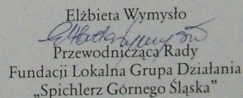 Elżbieta Wymysło
Przewodnicząca Rady
Fundacji Lokalna Grupa Działania
„Spichlerz Górnego Śląska”